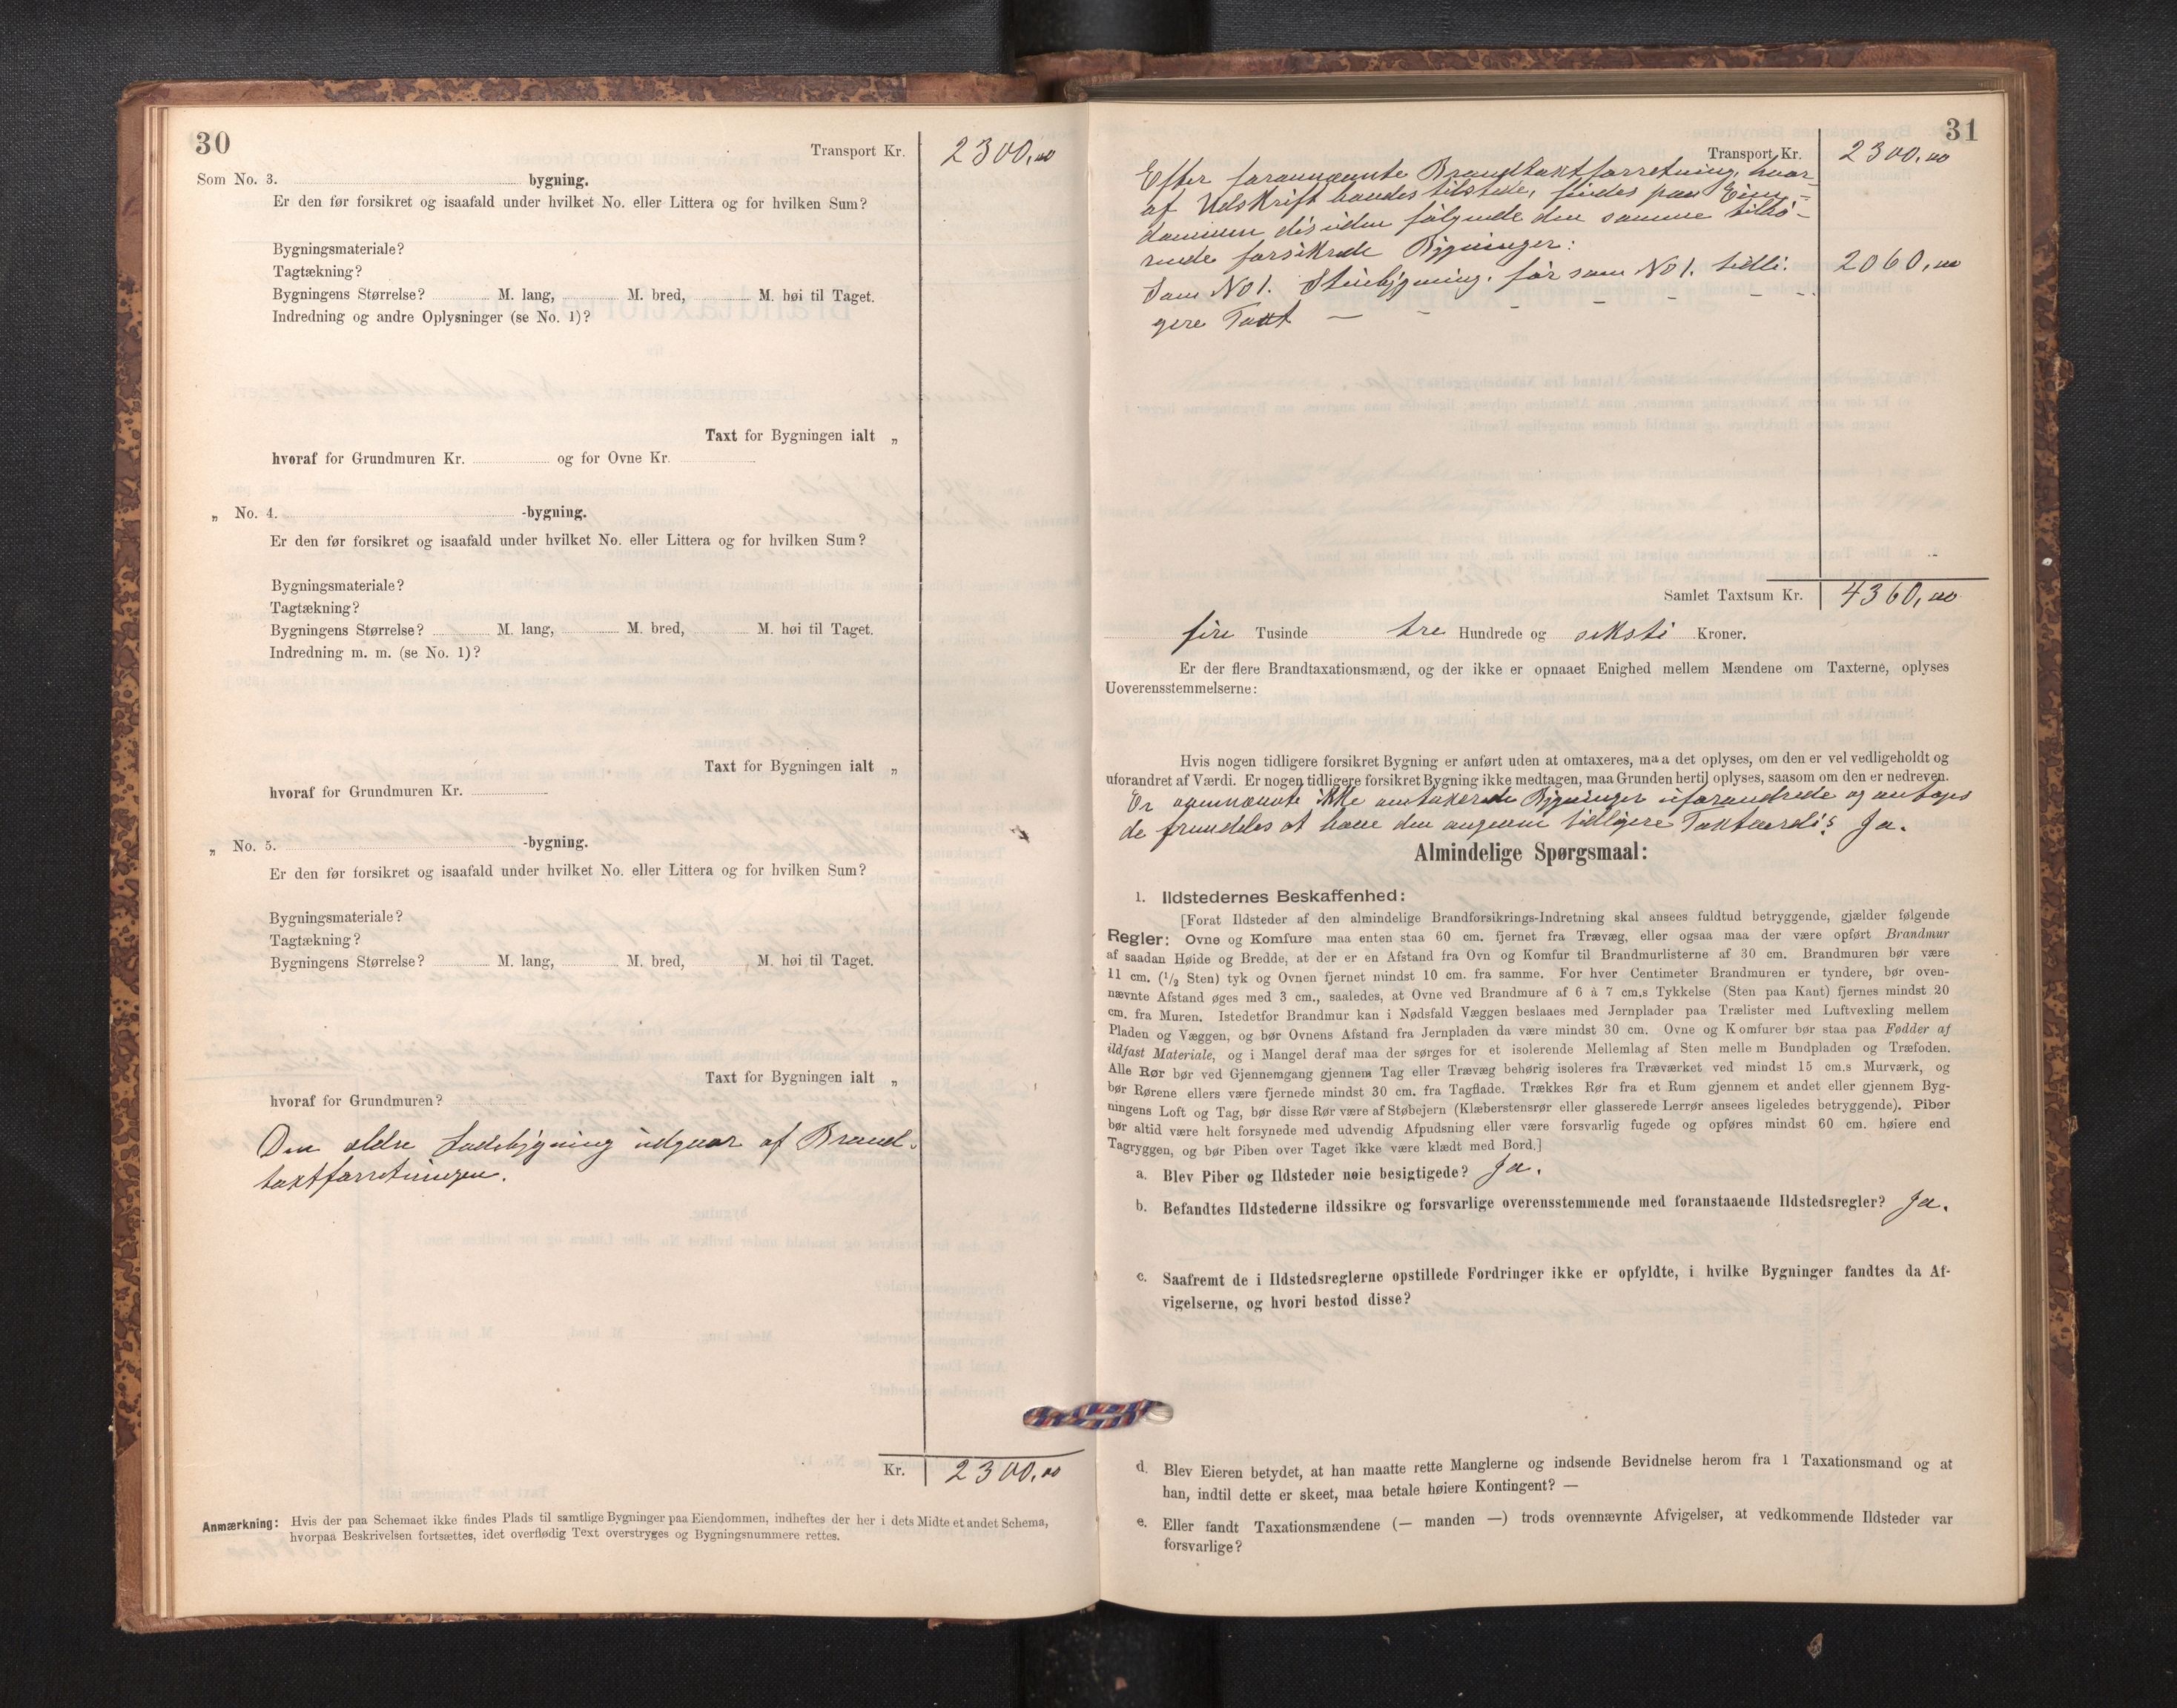 30
Transport Kr. 2300,00
Som No. 3. bygning.
Er den før forsikret og isaafald under hvilket No. eller Littera og for hvilken Sum?
Bygningsmateriale?
Tagtækning?
Bygningens Størrelse? M. lang, M. bred, M. høi til Taget.
Indredning og andre Oplysninger (se No. 1)?
Taxt for Bygningen ialt „
hvoraf for Grundmuren Kr. og for Ovne Kr.
„ No. 4. -bygning.
Er den før forsikret og isaafald under hvilket No. eller Littera og for hvilken Sum?
Bygningsmateriale?
Tagtækning?
Bygningens Størrelse? M. lang, M. bred, M. høi til Taget.
Indredning m. m. (se No. 1)?
Taxt for Bygningen ialt „
hvoraf for Grundmuren Kr.
„ No. 5. -bygning.
Er den før forsikret og isaafald under hvilket No. eller Littera og for hvilken Sum?
Bygningsmateriale?
Tagtækning?
Bygningens Størrelse? M. lang, M. bred, M. høi til Taget.
Taxt for Bygningen ialt „
hvoraf for Grundmuren?
Den ældre Ladebygning udgaar af Brand-
taxtforretningen.
Kr. 2300,00
Anmærkning: Hvis der paa Schemaet ikke findes Plads til samtlige Bygninger paa Eiendommen, indheftes der her i dets Midte et andet Schema,
hvorpaa Beskrivelsen fortsættes, idet overflødig Text overstryges og Bygningsnummere rettes.
31
Transport Kr. 2300,00
Efter forannævnte Brandtaxtforretning, hvor-
af Udskrift havdes tilstede, findes paa Eien-
dommen desuden følgende den samme tilhø-
rende forsikrede Bygninger:
Som No 1. Stuebygning, før som No 1. tidli- 2060,00
gere Taxt — - - - - -
Samlet Taxtsum Kr. 4360,00
fire Tusinde tre Hundrede og seksti Kroner.
Er der flere Brandtaxationsmænd, og der ikke er opnaaet Enighed mellem Mændene om Taxterne, oplyses
Uoverensstemmelserne:
Hvis nogen tidligere forsikret Bygning er anført uden at omtaxeres, maa det oplyses, om den er vel vedligeholdt og
uforandret af Værdi. Er nogen tidligere forsikret Bygning ikke medtagen, maa Grunden hertil oplyses, saasom om den er nedreven.
Er ovennævnte ikke omtaxerede Bygninger uforandrede og antages
de fremdeles at have den angivne tidligere Taxtværdi? Ja.
Almindelige Spørgsmaal:
1. Ildstedernes Beskaffenhed:
[Forat Ildsteder af den almindelige Brandforsikrings-Indretning skal ansees fuldtud betryggende, gjælder følgende
Regler: Ovne og Komfure maa enten staa 60 cm. fjernet fra Trævæg, eller ogsaa maa der være opført Brandmur
af saadan Høide og Bredde, at der er en Afstand fra Ovn og Komfur til Brandmurlisterne af 30 cm. Brandmuren bør være
11 cm. (½ Sten) tyk og Ovnen fjernet mindst 10 cm. fra samme. For hver Centimeter Brandmuren er tyndere, bør oven-
nævnte Afstand øges med 3 cm., saaledes, at Ovne ved Brandmure af 6 à 7 cm.s Tykkelse (Sten paa Kant) fjernes mindst 20
cm. fra Muren. Istedetfor Brandmur kan i Nødsfald Væggen beslaaes med Jernplader paa Trælister med Luftvexling mellem
Pladen og Væggen, og bør Ovnens Afstand fra Jernpladen da være mindst 30 cm. Ovne og Komfurer bør staa paa Fødder af
ildfast Materiale, og i Mangel deraf maa der sørges for et isolerende Mellemlag af Sten mellem Bundpladen og Træfoden.
Alle Rør bør ved Gjennemgang gjennem Tag eller Trævæg behørig isoleres fra Træværket ved mindst 15 cm.s Murværk, og
bør Rørene ellers være fjernede mindst 30 cm. fra Tagflade. Trækkes Rør fra et Rum gjennem et andet eller gjennem Byg-
ningens Loft og Tag, bør disse Rør være af Støbejern (Klæberstensrør eller glasserede Lerrør ansees ligeledes betryggende). Piber
bør altid være helt forsynede med udvendig Afpudsning eller være forsvarlig fugede og opføres mindst 60 cm. høiere end
Tagryggen, og bør Piben over Taget ikke være klædt med Bord.]
a. Blev Piber og Ildsteder nøie besigtigede? Ja.
b. Befandtes Ildstederne ildssikre og forsvarlige overensstemmende med foranstaaende Ildstedsregler? Ja.
c. Saafremt de i Ildstedsreglerne opstillede Fordringer ikke er opfyldte, i hvilke Bygninger fandtes da Af-
vigelserne, og hvori bestod disse?
d. Blev Eieren betydet, at han maatte rette Manglerne og indsende Bevidnelse herom fra 1 Taxationsmand og at
han, indtil dette er skeet, maa betale høiere Kontingent? —
e. Eller fandt Taxationsmændene (— manden —) trods ovennævnte Afvigelser, at vedkommende Ildsteder var
forsvarlige?